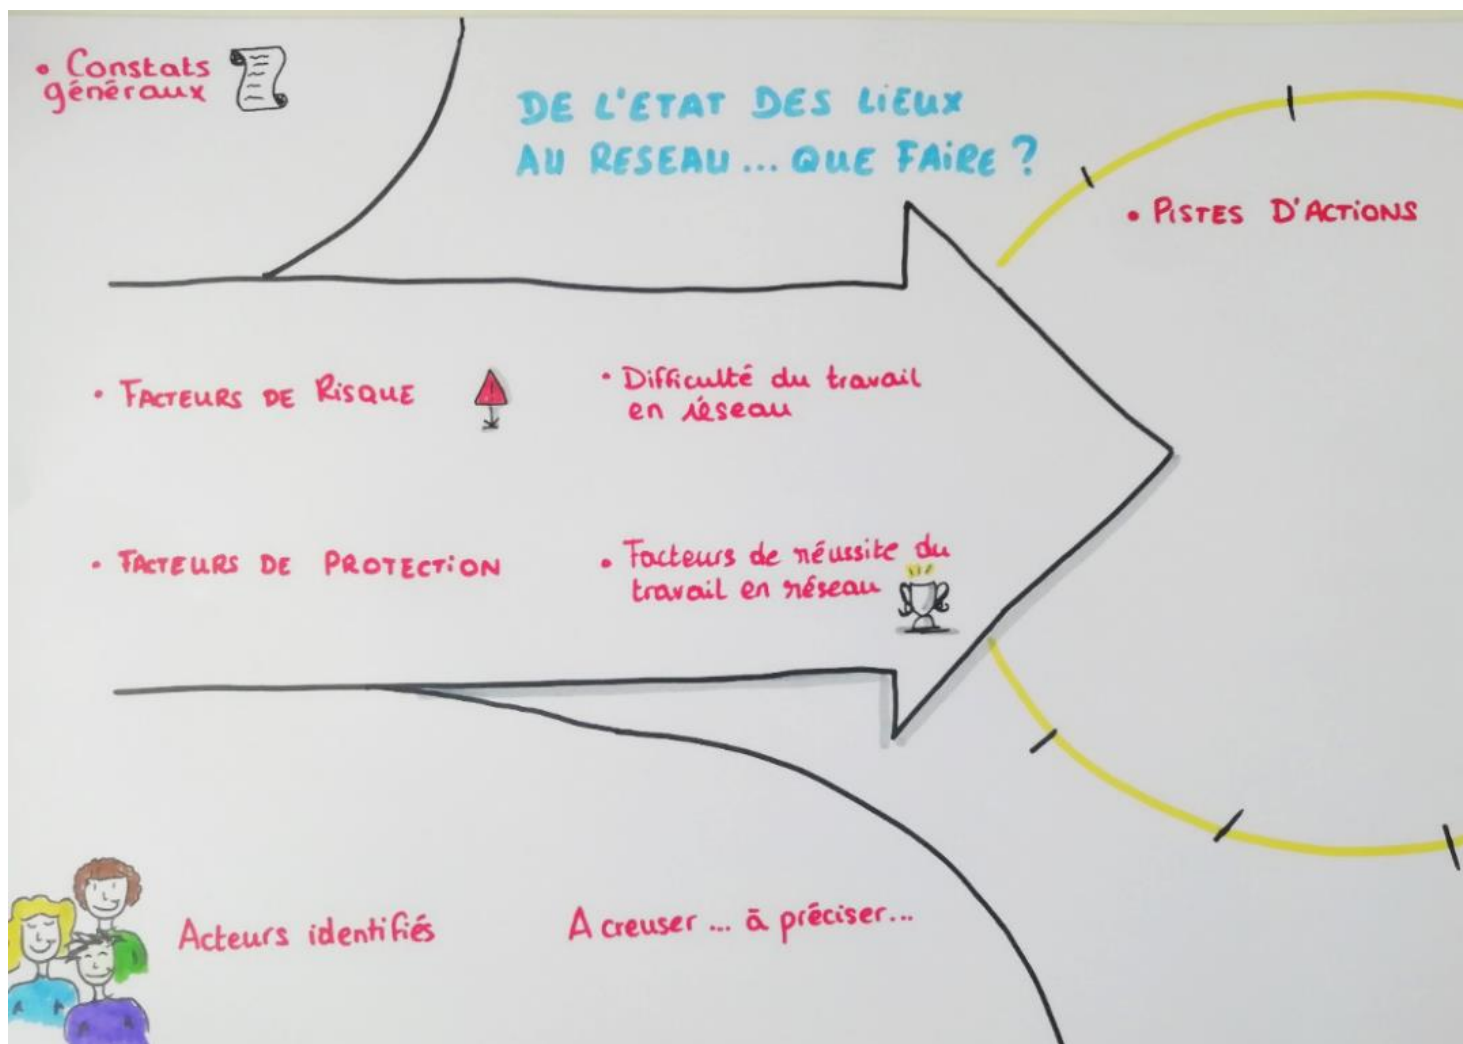 • Constats
généraux
DE L'ETAT DES LIEUX
AU RESEAU... QUE FAIRE ?
• PISTES D'ACTIONS
• FACTEURS DE RISQUE
• Difficulté du travail
en réseau
• FACTEURS DE PROTECTION
• Facteurs de réussite du
travail en réseau
Acteurs identifiés
A creuser... à préciser...